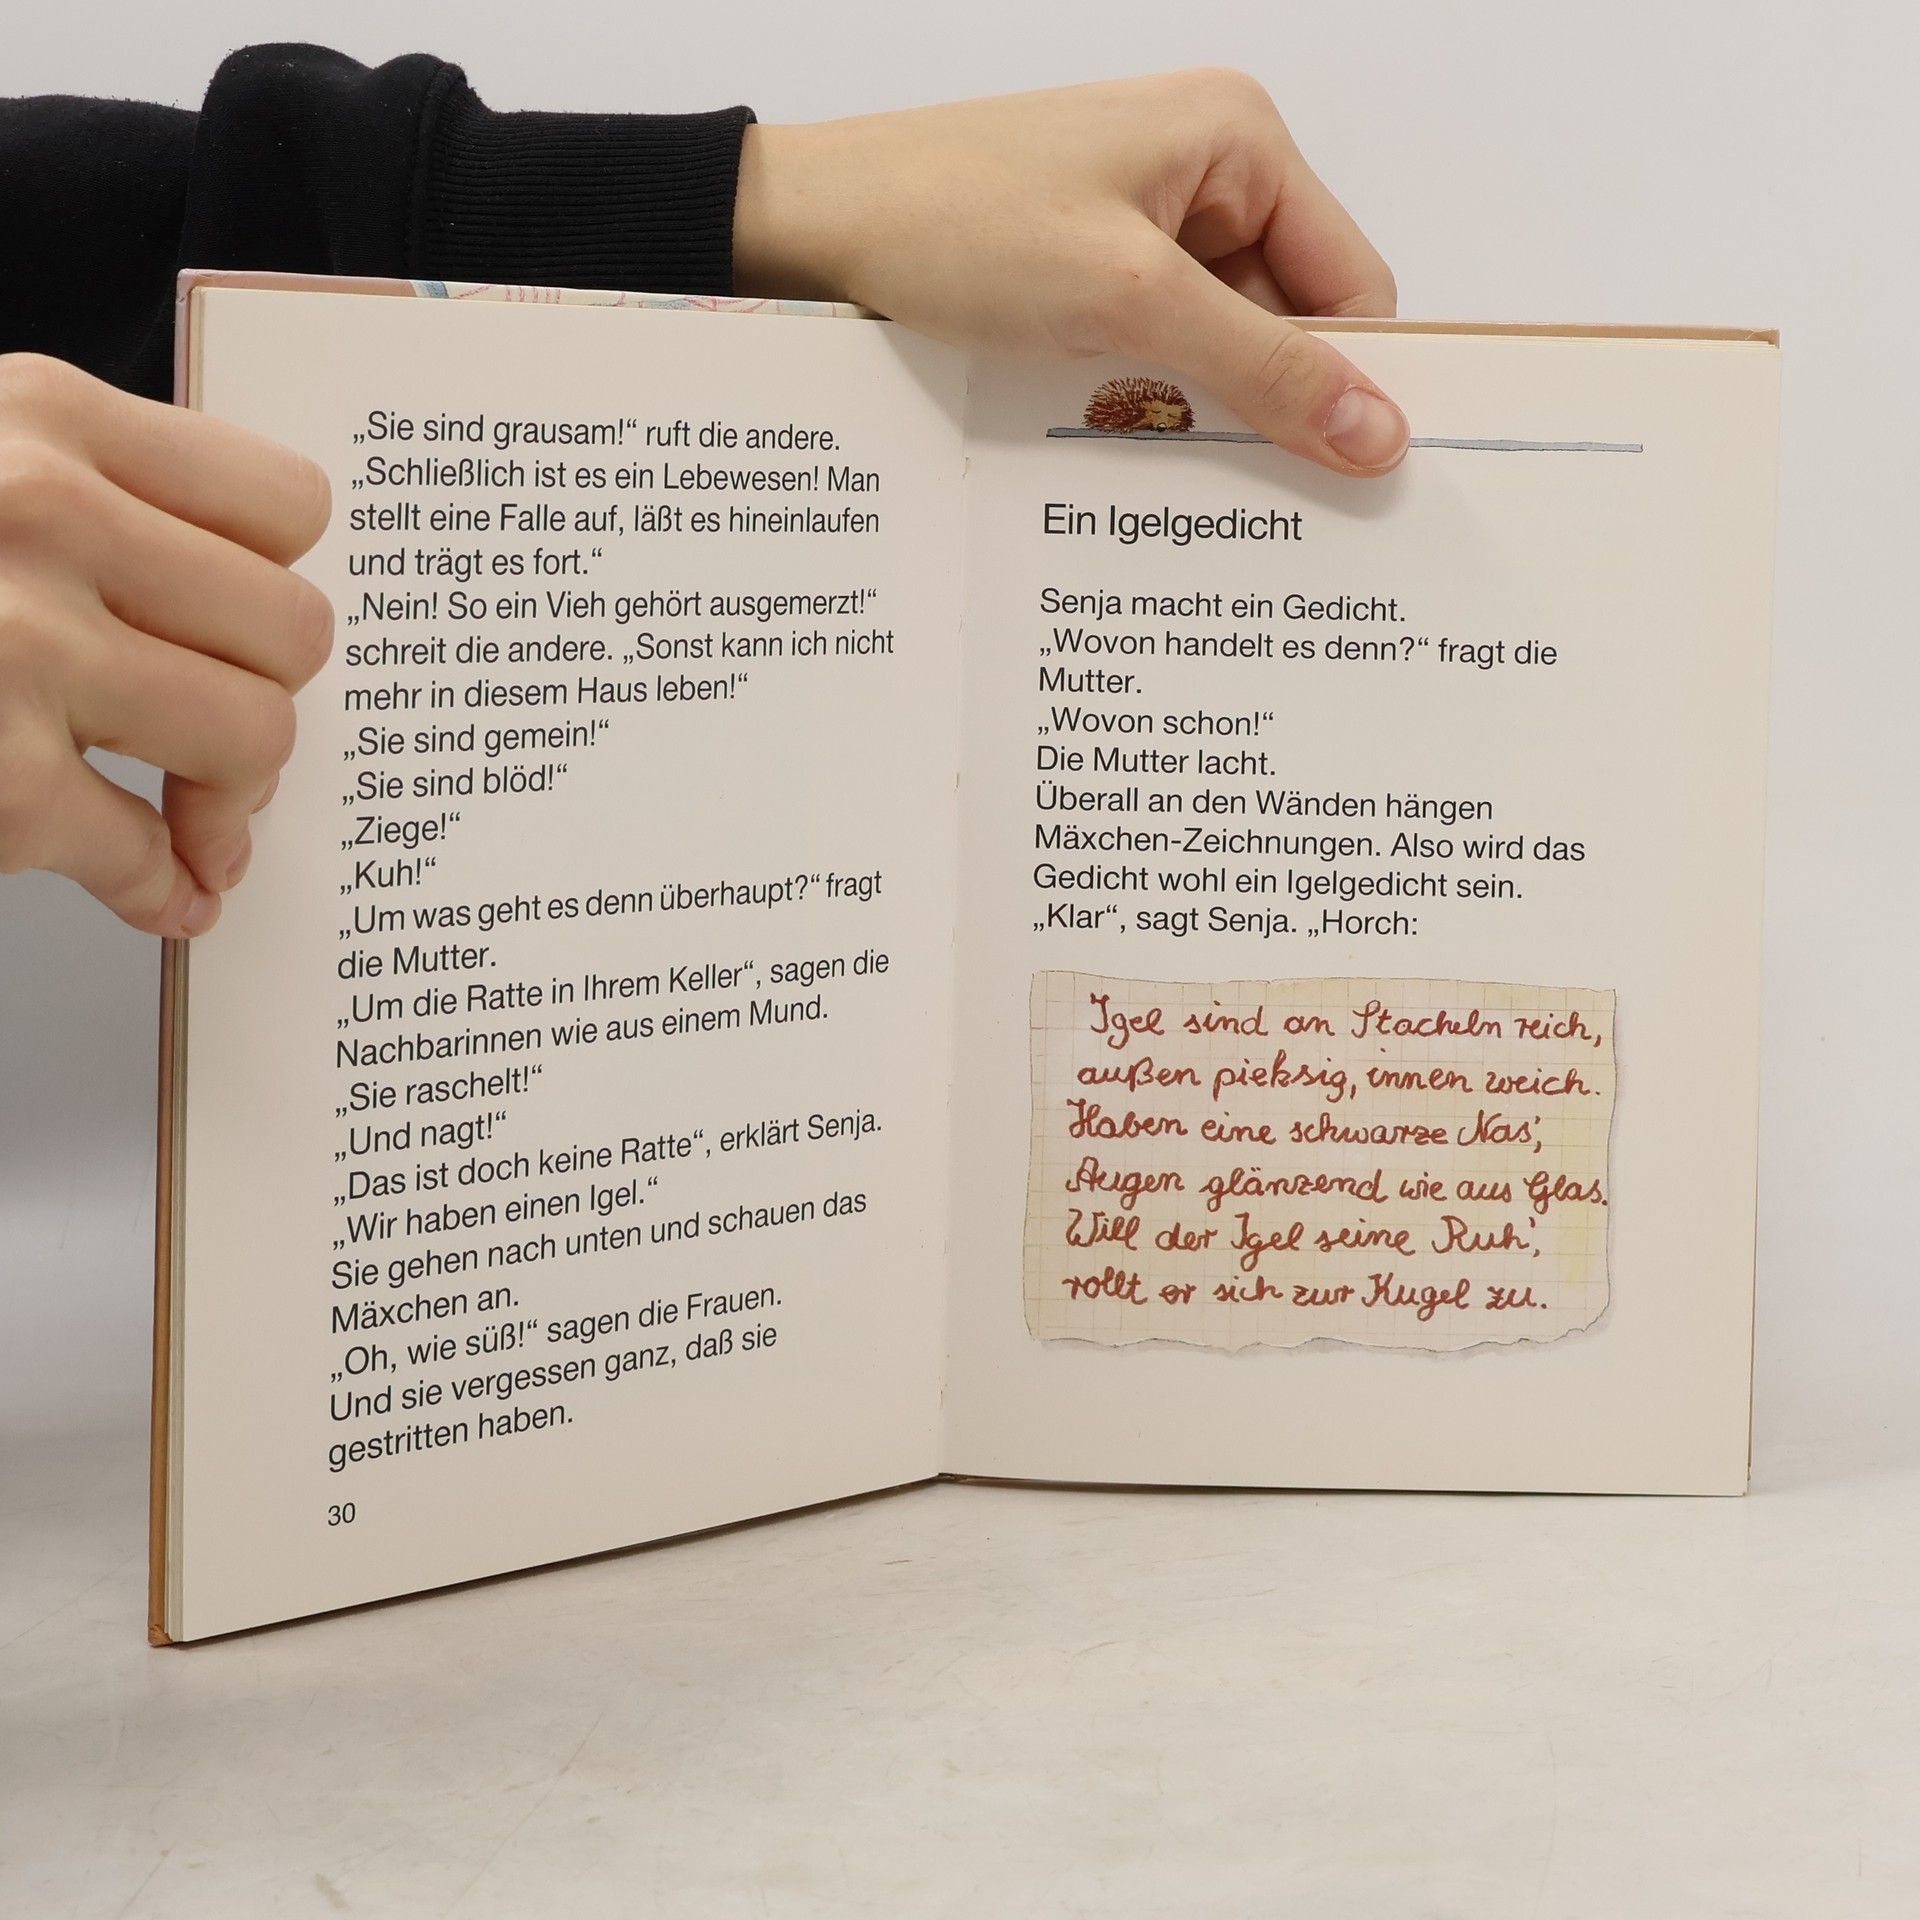 „Sie sind grausam!“ ruft die andere.
„Schließlich ist es ein Lebewesen! Man
stellt eine Falle auf, läßt es hineinlaufen
und trägt es fort.“
„Nein! So ein Vieh gehört ausgemerzt!“
schreit die andere. „Sonst kann ich nicht
mehr in diesem Haus leben!“
„Sie sind gemein!“
„Sie sind blöd!“
„Ziege!“
„Kuh!“
„Um was geht es denn überhaupt?“ fragt
die Mutter.
„Um die Ratte in Ihrem Keller“, sagen die
Nachbarinnen wie aus einem Mund.
„Sie raschelt!“
„Und nagt!“
„Das ist doch keine Ratte“, erklärt Senja.
„Wir haben einen Igel.“
Sie gehen nach unten und schauen das
Mäxchen an.
„Oh, wie süß!“ sagen die Frauen.
Und sie vergessen ganz, daß sie
gestritten haben.
30
Ein Igelgedicht
Senja macht ein Gedicht.
„Wovon handelt es denn?“ fragt die
Mutter.
„Wovon schon!“
Die Mutter lacht.
Überall an den Wänden hängen
Mäxchen-Zeichnungen. Also wird das
Gedicht wohl ein Igelgedicht sein.
„Klar“, sagt Senja. „Horch:
Igel sind an Stacheln reich,
außen pieksig, innen weich.
Haben eine schwarze Nas',
Augen glänzend wie aus Glas.
Will der Igel seine Ruh',
rollt er sich zur Kugel zu.